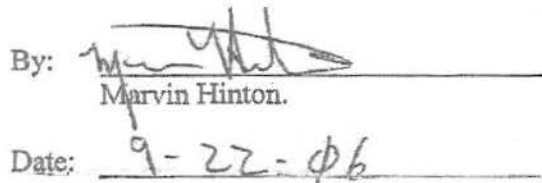 By:
Marvin Hinton.
Date: 9-22-06